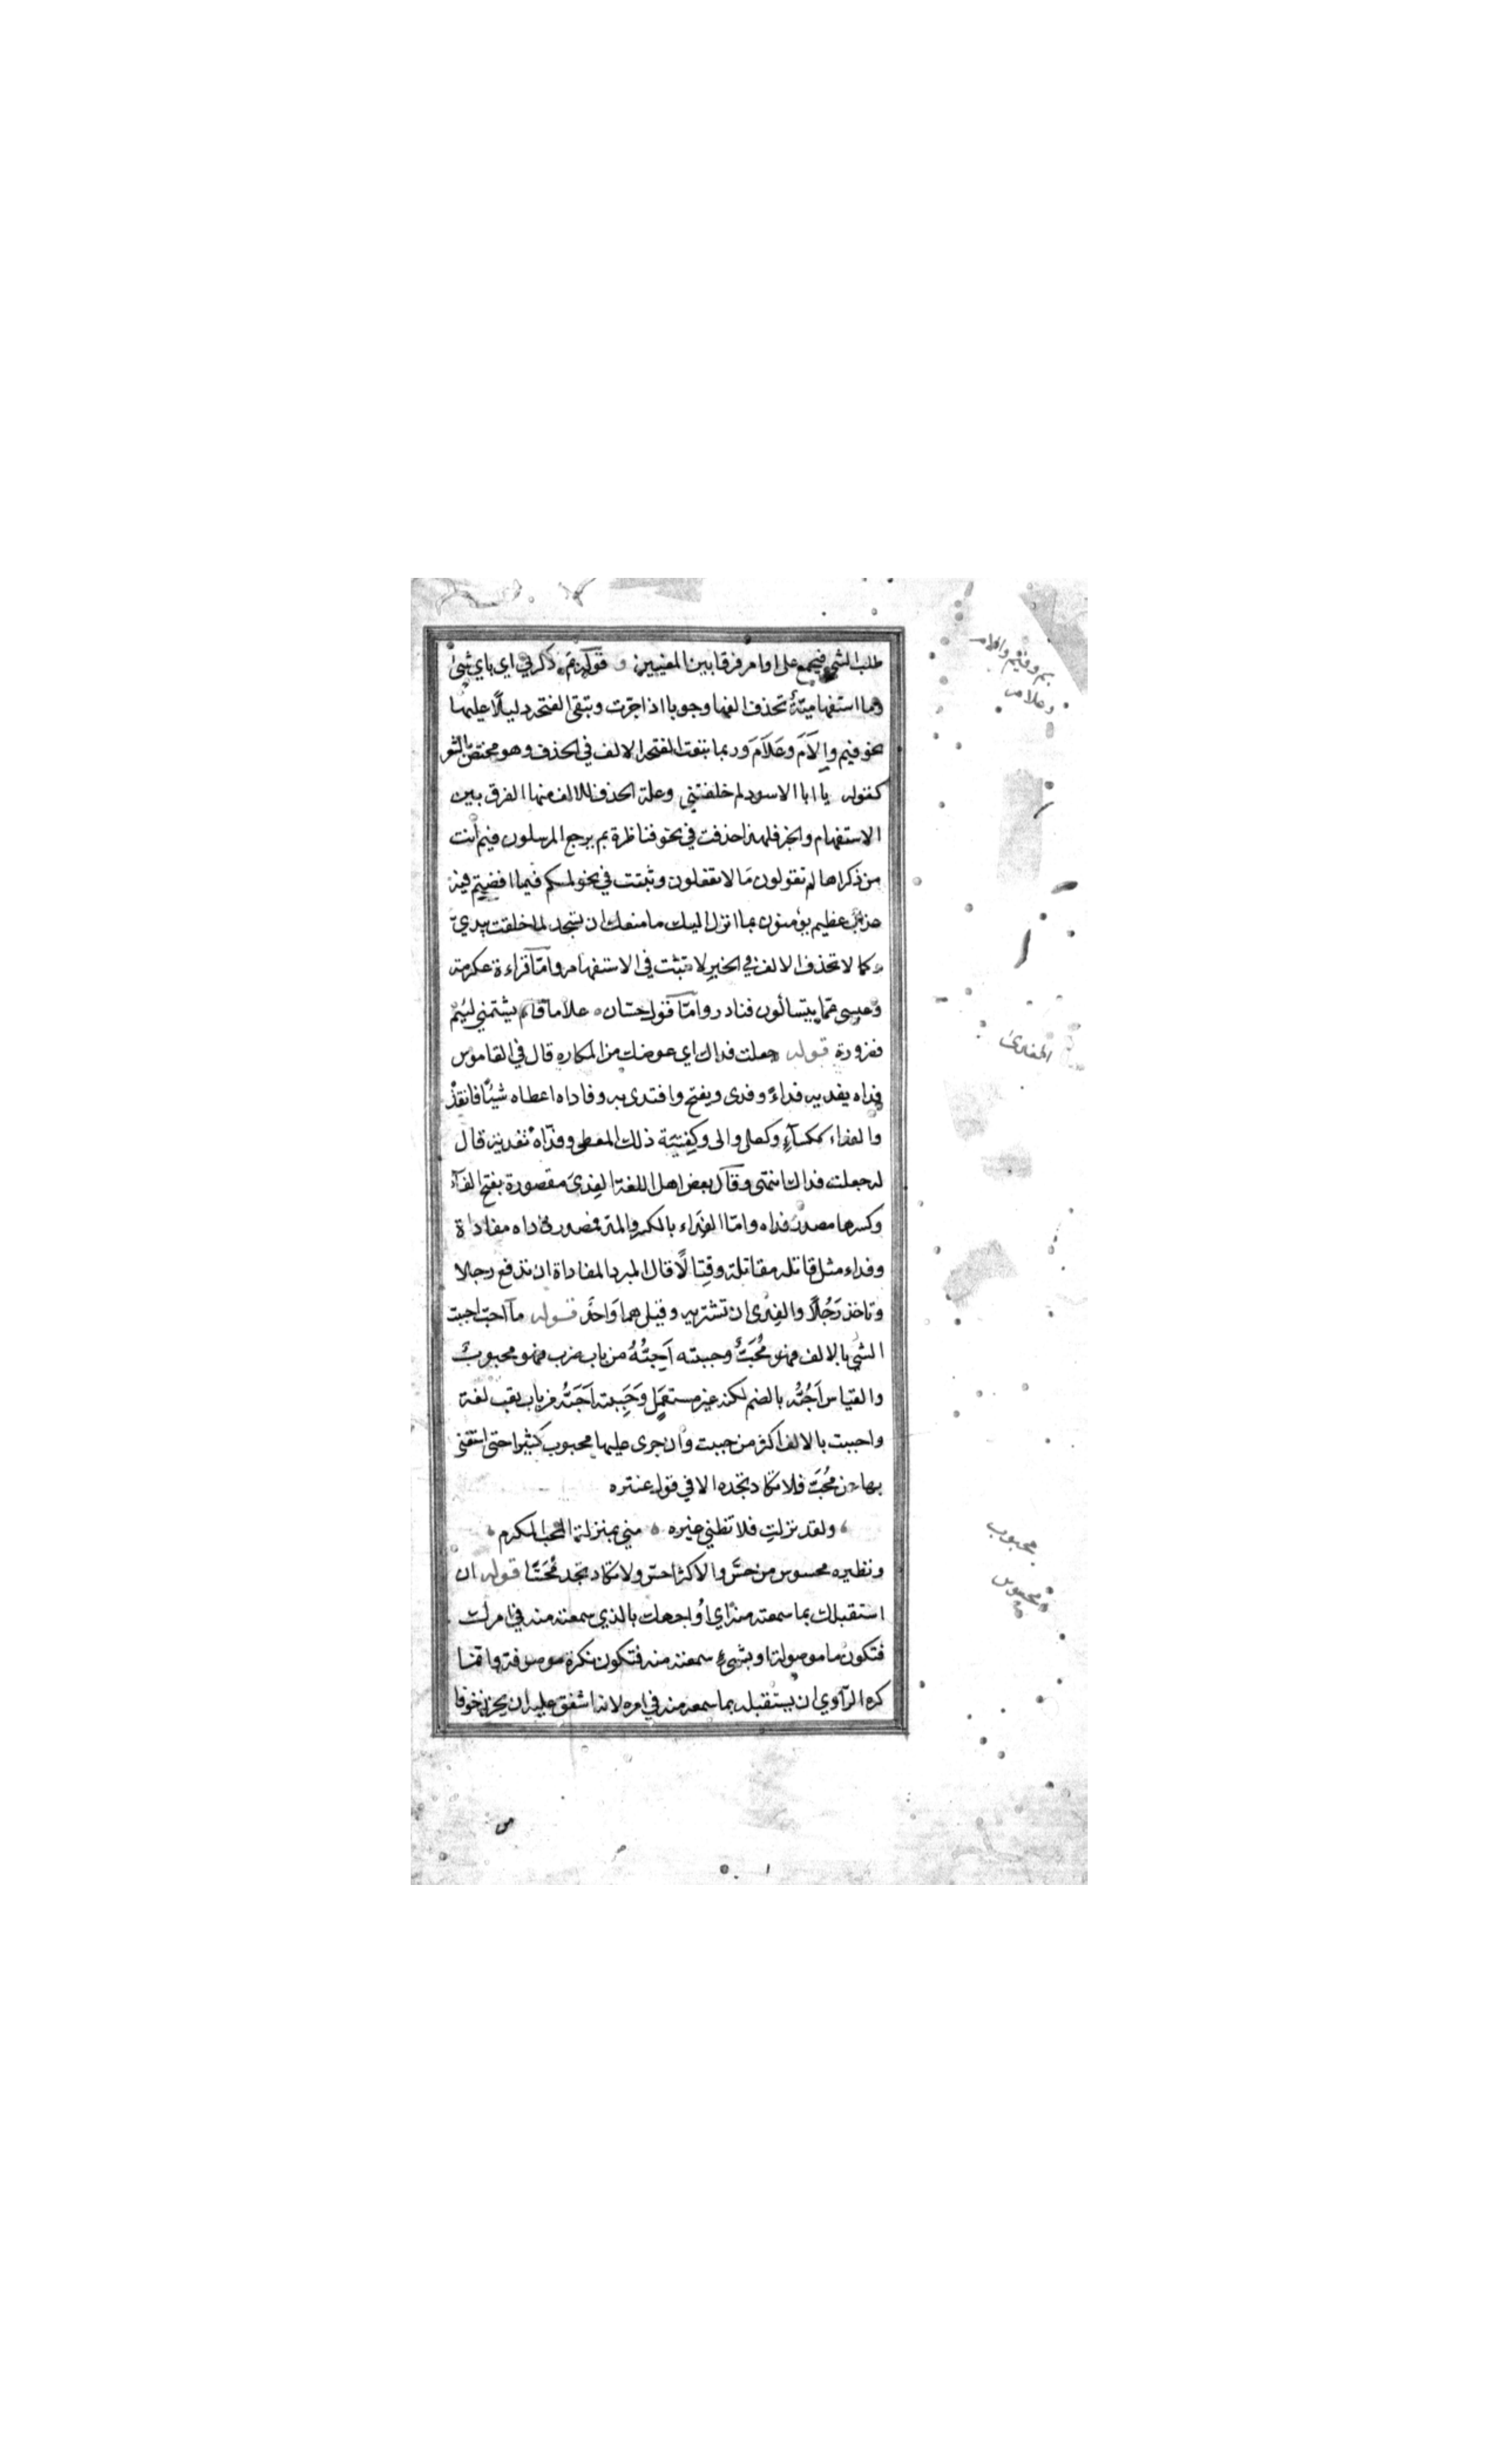 طلب الشيء فيجمع على اوامر فرقا بين المعنيين وقوله بم ذكرني اي باي شئ
وما استفهامية تحذف الفها وجوبا اذا جرت وتبقى الفتحه دليلًا عليها
نحو فيم وإلَامَ وعَلَامَ وربما تبعت الفتحه الالف في الحذف وهو مختص بالشعر
كقوله يا ابا الاسود لم خلفتني وعلة الحذف للالف منها الفرق بين
الاستفهام والخبر فلهذا حذفت في نحو فناظرة بم يرجع المرسلون فيم انت
من ذكراها لم تقولون مَا لا تفعلون وثبتت في نحو لمسكم فيما افضتم فيه
عذاب عظيم يؤمنون بما انزل اليك ما منعك ان تسجد لما خلقت بيديّ
وكما لا تحذف الالف في الخبر لا تثبت في الاستفهام وامّا قراءة عكرمة
وعيسى عمّا يتسائلون فنادر وامّا قول حسّان علاما قام يشتمني لئيم
فضرورة قوله جعلت فداك اي عوضك من المكاره قال في القاموس
فداه يفديه فداءً وفدى ويفتح وافتدى به وفاداه اعطاه شيئًا فانقذه
والفداء ككساءٍ وكعلى والى وكفِتيَة ذلك المعطى وفدّاهُ تفدية قال
له جعلت فداك انتهى وقال بعض اهل اللغة الفدى مقصورة بفتح الفاء
وكسرها مصدر فداه وامّا الفِدَاء بالكسر والمد فمصدر فاداه مفاداة
وفداء مثل قاتله مقاتلة وقِتالًا قال المبرد المفاداة ان تدفع رجلا
وتاخذ رَجُلًا والفِدى ان تشتريه وقيل هما وَاحد قوله ما احب احببت
الشئ بالالف فهو مُحَبٌّ وحببته اَحِبُّهُ من باب ضرب فهو محبوبٌ
والقياس اَحُبُّه بالضم لكنه غير مستعمل وَحَبِبته اَحَبُّه من باب تعب لغة
واحببت بالالف اكثر من حببت وان جرى عليها محبوب كثيرا حتى استغني
بها عن مُحَبّ فلا تكاد تجده الا في قول عنتره
ولقد نزلتِ فلا تظني غيره منّي بمنزلة المحب المكرم
ونظيره محسوس من حسّ والاكثر احسّ ولا تكاد تجد مُحَسًّا قوله ان
استقبلك بما سمعته منه اي اُواجهك بالذي سمعته منه في امرك
فتكون ما موصولة او بشيءٍ سمعته منه فتكون نكرة موصوفة وانّما
كره الرّاوي ان يستقبله بما سمعه منه في امره لانه اشفق عليه ان يحزنه خوفا
بم وفيم والام
وعلام
الفدى
محبوب
محسوس